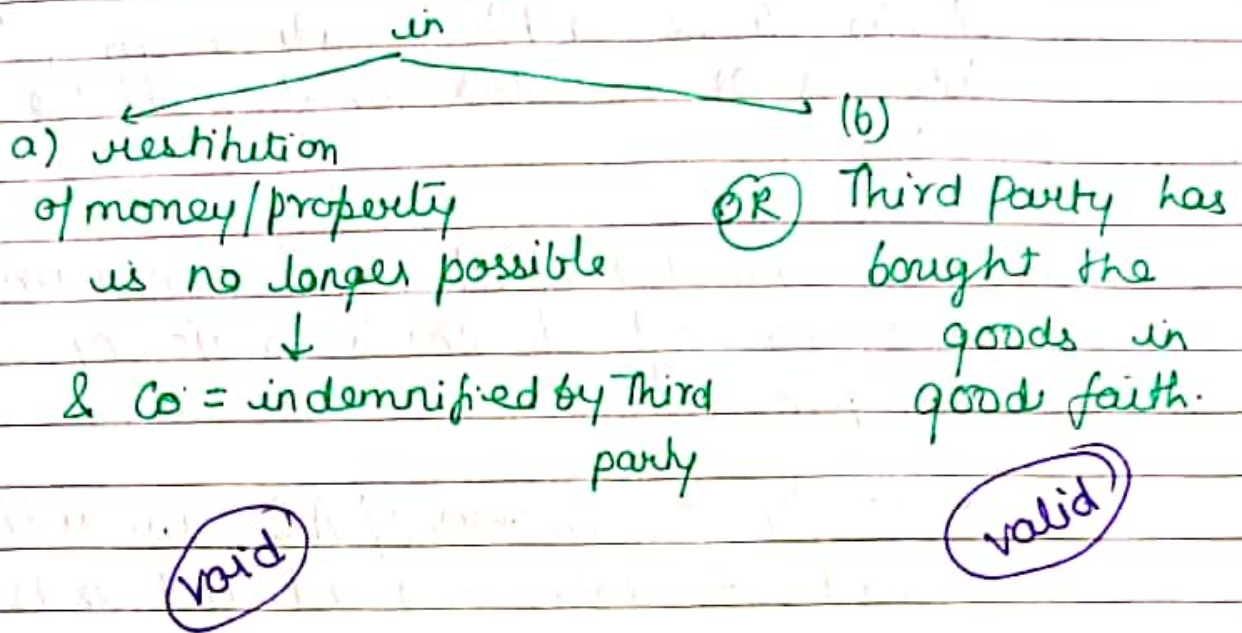 in
a) restitution
of money/property
is no longer possible
& Co = indemnified by Third
party
void
OR
(b)
Third Party has
bought the
goods in
good faith.
valid